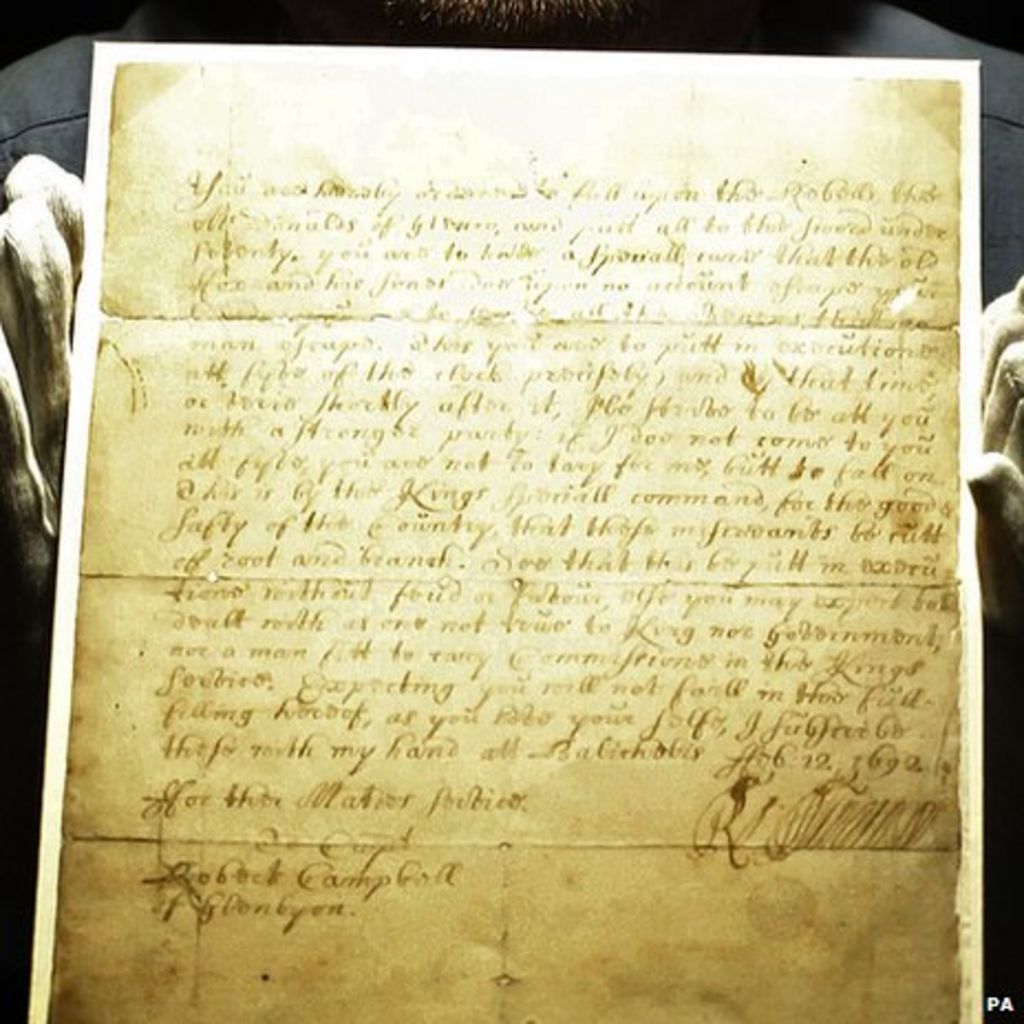 You are hereby ordered to fall upon the Rebells, the
McDonalds of Glenco, and putt all to the sword under
seventy. you are to have a speciall care that the old
fox and his sones doe upon no account escape your
all the avenues that no
man escape. This you are to putt in executione
att fyve of the clock precisely; and by that time,
or verie shortly after it, I'le strive to be att you
with a stronger party: if I doe not come to you
att fyve, you are not to tary for me, butt to fall on.
This is by the Kings speciall command, for the good &
safty of the Country, that these miscreants be cutt
off root and branch. See that this be putt in execu
tione without feud or favour, else you may expect to be
dealt with as one not true to King nor Government,
nor a man fitt to cary Commissione in the Kings
service. Expecting you will not faill in the full-
filling hereof, as you love your selfe, I subscribe
these with my hand att Balicholis Feb: 12, 1692
For their Maties service.
R: Duncanson
To Capt
Robert Campbell
of Glenlyon.
PA